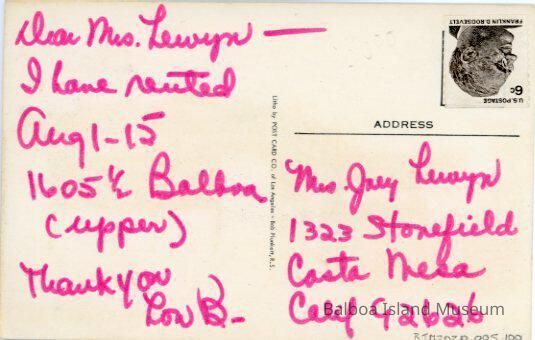 Dear Mrs. Lewyn —
I have rented
Aug 1-15
1605½ Balboa
(upper)
Thank you
Lou B-
Litho by POST CARD CO. of Los Angeles - Bob Plunkett, R.S.
FRANKLIN D. ROOSEVELT
U.S. POSTAGE
6c
ADDRESS
Mrs. Joey Lewyn
1323 Stonefield
Costa Mesa
Calif 92626
Balboa Island Museum